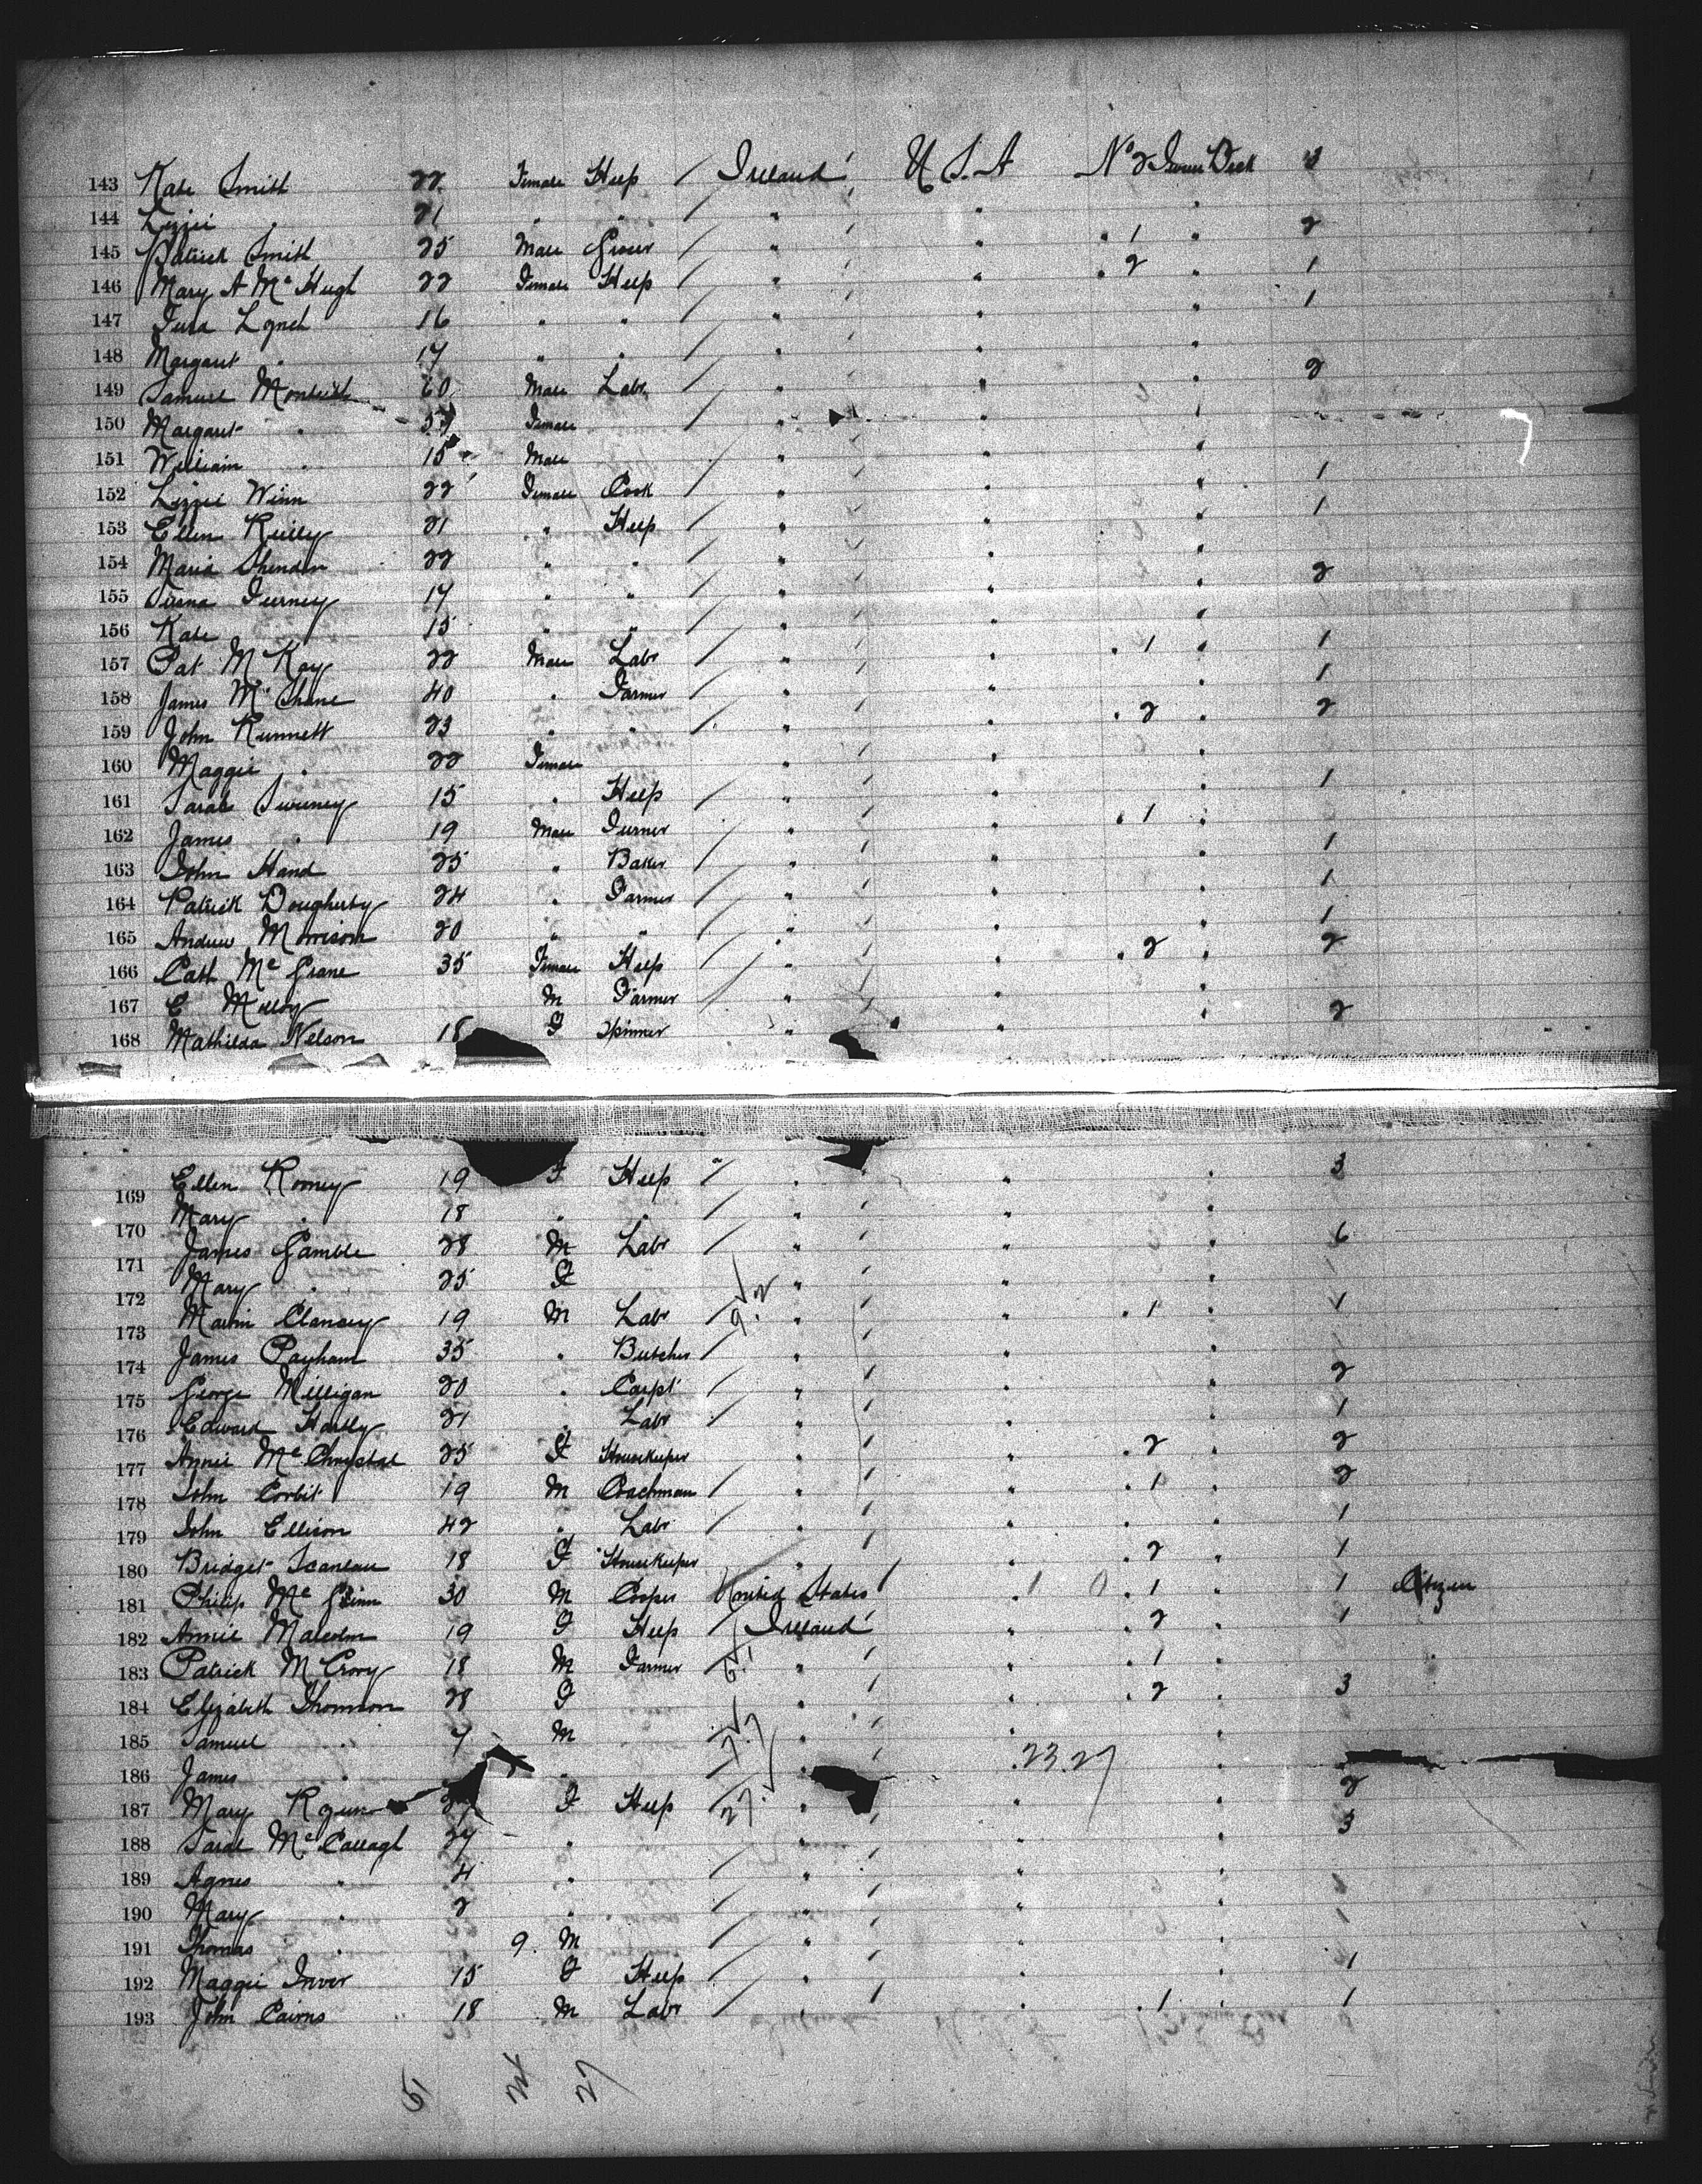 143 Kate Smith 22 Female Help / Ireland U.S.A No 2 Tween Deck 3
144 Lizzie " 21 " " / " " "
145 Patrick Smith 25 Male Grocer / " " " 1 " 2
146 Mary A McHugh 22 Female Help / " " " 2 " 1
147 Lynch 16 " " / " " " 1
148 Margaret " 17 " " / " " "
149 Samuel 60 Male Labr / " " " 2
150 Margaret " Female / " " "
151 William " 15 Male " " "
152 Lizzie Winn 22 Female Cook / " " " 1
153 Ellen Reilly 21 " Help / " " " 1
154 Maria 22 " " / " " "
155 17 " " / " " " 2
156 Kate " 15 " " / " " "
157 Pat McKay 22 Male Labr / " " " 1 " 1
158 James McShane 40 " Farmer / " " " 1
159 John 23 " " / " " " 2 " 2
160 Maggie " 22 Female " " "
161 Sarah Sweeney 15 " Help / " " " 1
162 James " 19 Male Turner / " " " 1 "
163 John Hand 25 " Baker / " " " 1
164 Patrick Dougherty 24 " Farmer / " " " 1
165 Andrew Morrison 20 " " / " " " 1
166 Cath McGrane 35 Female Help / " " " 2 " 2
167 C Molloy M Farmer / " " "
168 Mathilda Nelson 18 F Spinner " " " 2
169 Ellen Rooney 19 F Help / " " " 3
170 Mary " 18 " " / " " "
171 James Gamble 28 M Labr / " " " 6
172 Mary " 25 F " " "
173 Clancey 19 M Labr 9.2 " " " 1 " 1
174 James 35 " Butcher / " " "
175 George Milligan 20 " Carpt / " " " 2
176 Edward 21 " Labr / " " " 1
177 Annie McChrystal 25 F Housekeeper " " " 2 " 2
178 John Corbit 19 M Coachman / " " " 1 " 2
179 John Ellison 42 " Labr / " " " 1
180 Bridget 18 F Housekeeper " " " 2 " 1
181 Philip McGlinn 30 M Cooper United States " " 1 " 1 Citizen
182 Annie Malcolm 19 F Help Ireland " " 2 " 1
183 Patrick McCrory 18 M Farmer " " " 1 "
184 Elizabeth Thomson 28 F " " " 2 " 3
185 Samuel " 7 M " " "
186 James " " " 23.27 "
187 Mary F Help 27. " " " 2
188 Sarah McCallagh 27 " " " " 3
189 Agnes " 4 " / " " "
190 Mary " 2 " / " " "
191 Thomas " 9. M / " " "
192 Maggie 15 F Help / " " " 1
193 John Cairns 18 M Labr / " " " 1 " 1
51 24 27